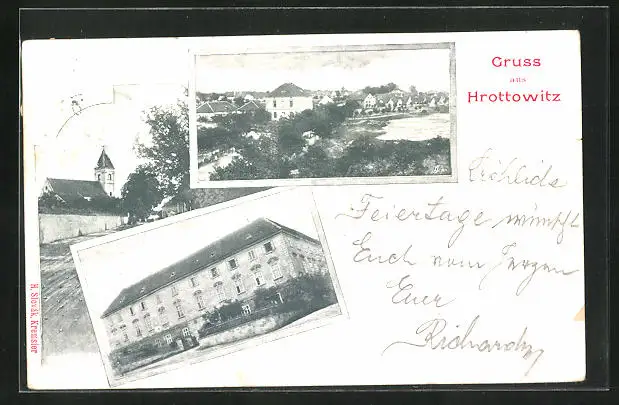 Gruss
aus
Hrottowitz
Fröhliche
Feiertage wünscht
Euch vom Herzen
Euer
Richard
H. Slovák, Kremsier